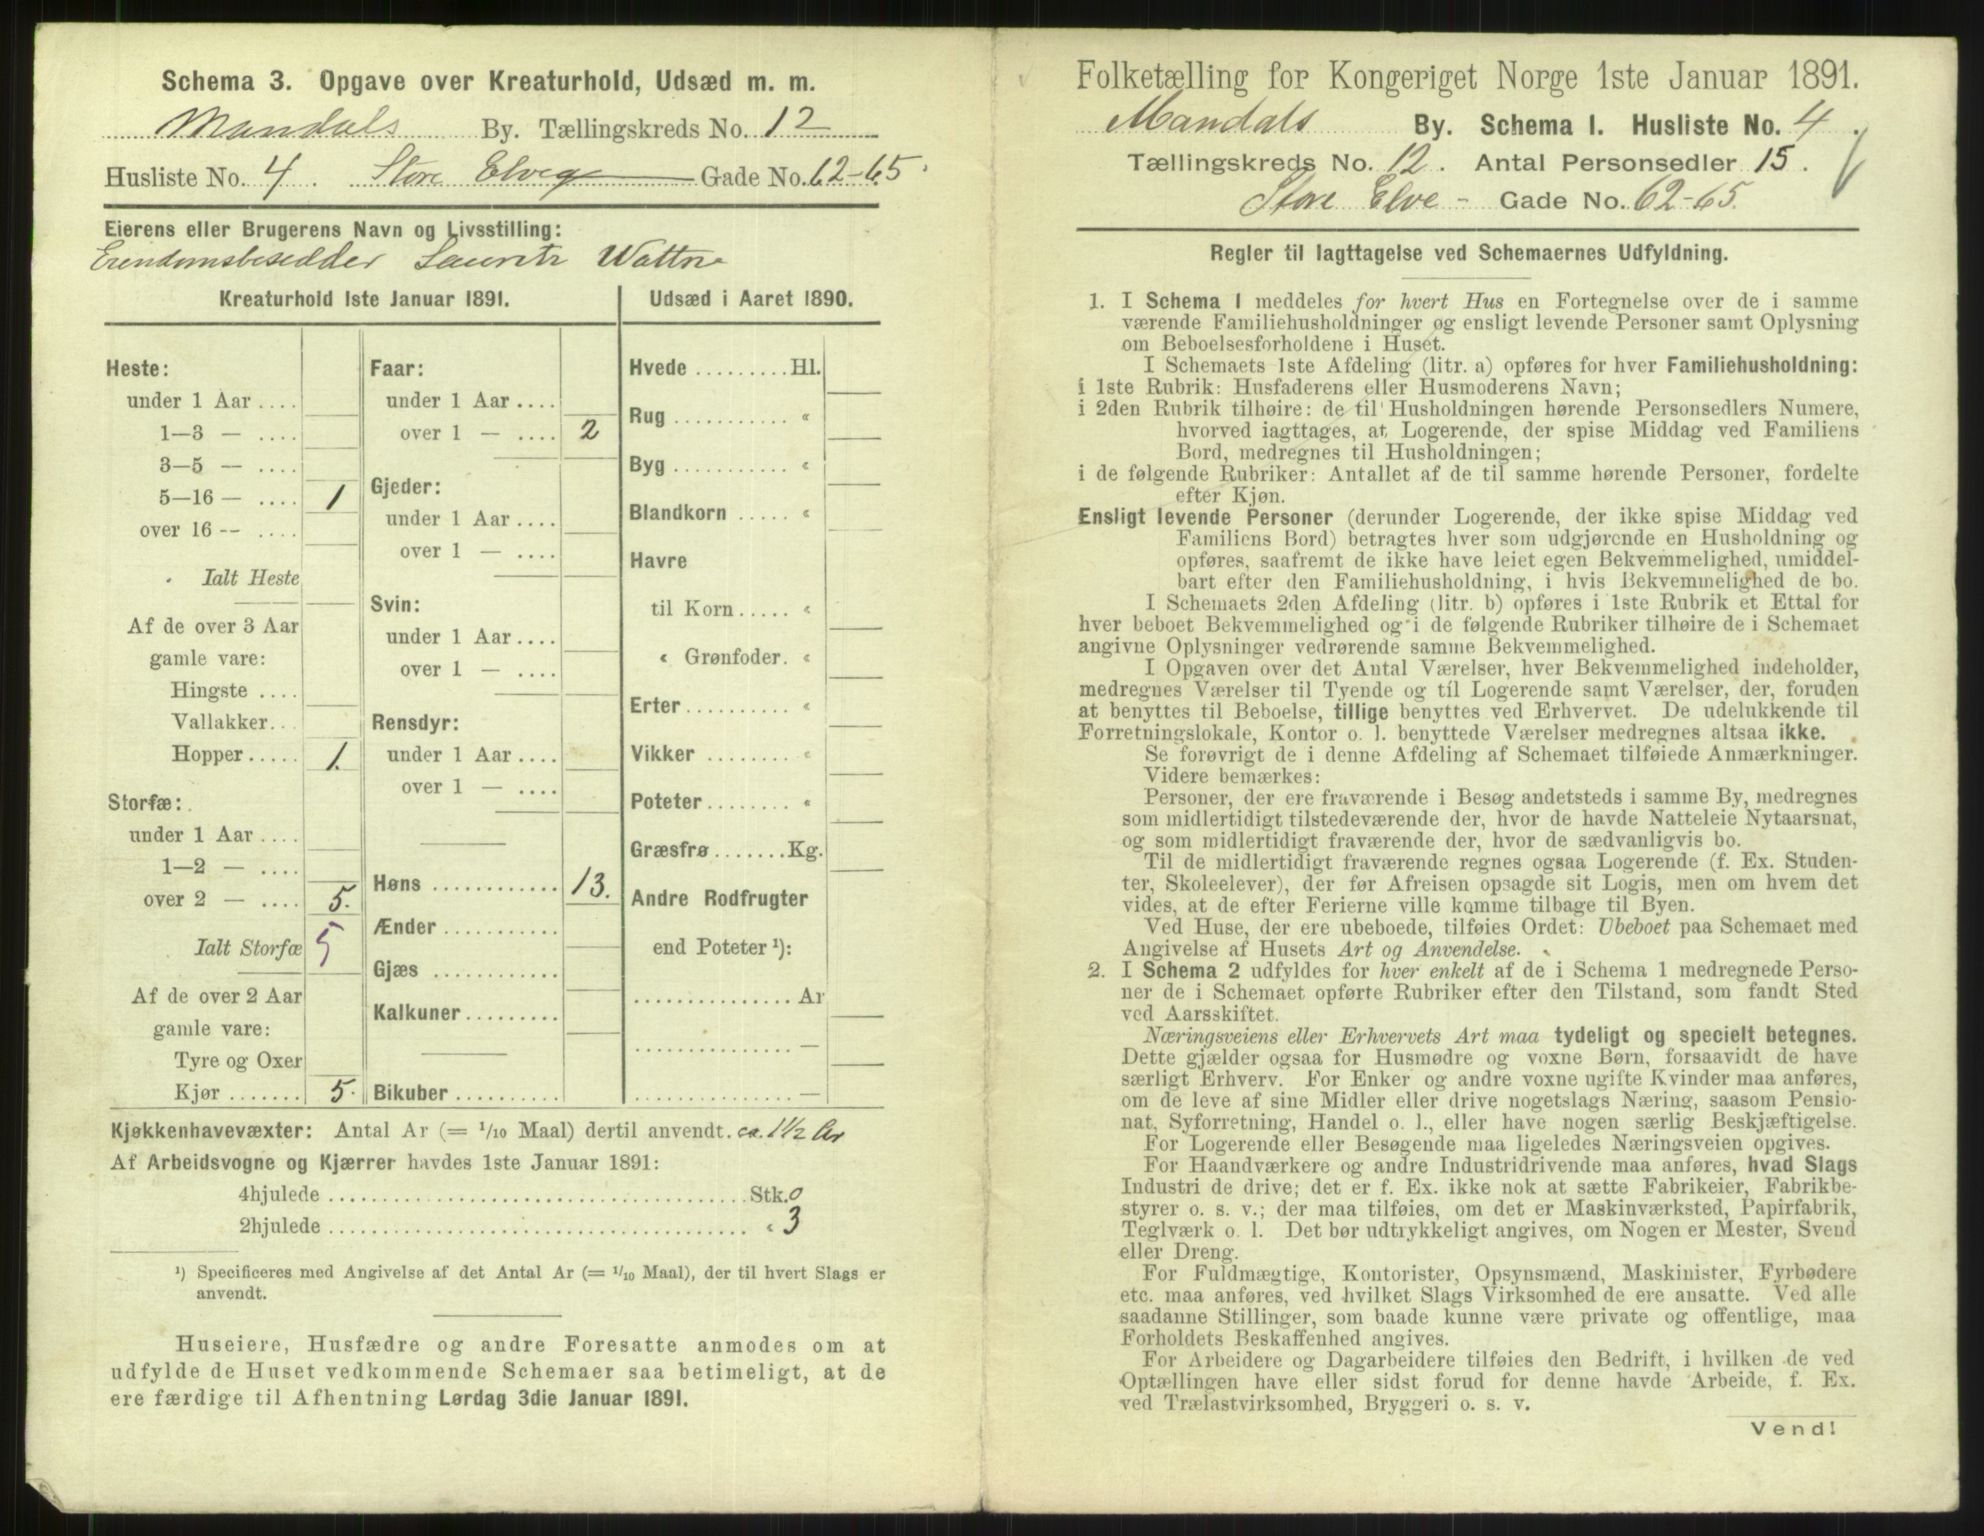 Schema 3. Opgave over Kreaturhold, Udsæd m. m.
Mandals By. Tællingskreds No. 12
Husliste No. 4 Store Elveg Gade No. 62-65.
Eierens eller Brugerens Navn og Livsstilling:
Eiendomsbesidder Lauritz Wattne
Kreaturhold 1ste Januar 1891.
Heste:
under 1 Aar ....
1—3 — ....
3—5 — ....
5—16 — .... 1
over 16 -- ....
Ialt Heste
Af de over 3 Aar
gamle vare:
Hingste ....
Vallakker...
Hopper ..... 1.
Storfæ:
under 1 Aar ....
1—2 — ....
over 2 — .... 5.
Ialt Storfæ 5
Af de over 2 Aar
gamle vare:
Tyre og Oxer
Kjør ....... 5.
Faar:
under 1 Aar ....
over 1 — .... 2
Gjeder:
under 1 Aar ....
over 1 — ....
Svin:
under 1 Aar ....
over 1 — ....
Rensdyr:
under 1 Aar ....
over 1 — ....
Høns ............ 13.
Ænder ...........
Gjæs ............
Kalkuner.........
Bikuber ..........
Udsæd i Aaret 1890.
Hvede ......... Hl.
Rug ........... «
Byg ........... «
Blandkorn ..... «
Havre
til Korn ..... «
« Grønfoder. «
Erter ......... «
Vikker ........ «
Poteter ........ «
Græsfrø ....... Kg.
Andre Rodfrugter
end Poteter ¹):
............... Ar
............... —
............... —
Kjøkkenhavevæxter: Antal Ar (= 1/10 Maal) dertil anvendt. ca. 1½ Ar
Af Arbeidsvogne og Kjærrer havdes 1ste Januar 1891:
4hjulede ..................................... Stk. 0
2hjulede ..................................... « 3
¹) Specificeres med Angivelse af det Antal Ar (= 1/10 Maal), der til hvert Slags er
anvendt.
Huseiere, Husfædre og andre Foresatte anmodes om at
udfylde de Huset vedkommende Schemaer saa betimeligt, at de
ere færdige til Afhentning Lørdag 3die Januar 1891.
Folketælling for Kongeriget Norge 1ste Januar 1891.
Mandals By. Schema I. Husliste No. 4.
Tællingskreds No. 12. Antal Personsedler 15.
Store Elve - Gade No. 62-65.
Regler til Iagttagelse ved Schemaernes Udfyldning.
1. I Schema I meddeles for hvert Hus en Fortegnelse over de i samme
værende Familiehusholdninger og ensligt levende Personer samt Oplysning
om Beboelsesforholdene i Huset.
I Schemaets 1ste Afdeling (litr. a) opføres for hver Familiehusholdning:
i 1ste Rubrik: Husfaderens eller Husmoderens Navn;
i 2den Rubrik tilhøire: de til Husholdningen hørende Personsedlers Numere,
hvorved iagttages, at Logerende, der spise Middag ved Familiens
Bord, medregnes til Husholdningen;
i de følgende Rubriker: Antallet af de til samme hørende Personer, fordelte
efter Kjøn.
Ensligt levende Personer (derunder Logerende, der ikke spise Middag ved
Familiens Bord) betragtes hver som udgjørende en Husholdning og
opføres, saafremt de ikke have leiet egen Bekvemmelighed, umiddel-
bart efter den Familiehusholdning, i hvis Bekvemmelighed de bo.
I Schemaets 2den Afdeling (litr. b) opføres i 1ste Rubrik et Ettal for
hver beboet Bekvemmelighed og i de følgende Rubriker tilhøire de i Schemaet
angivne Oplysninger vedrørende samme Bekvemmelighed.
I Opgaven over det Antal Værelser, hver Bekvemmelighed indeholder,
medregnes Værelser til Tyende og til Logerende samt Værelser, der, foruden
at benyttes til Beboelse, tillige benyttes ved Erhvervet. De udelukkende til
Forretningslokale, Kontor o. l. benyttede Værelser medregnes altsaa ikke.
Se forøvrigt de i denne Afdeling af Schemaet tilføiede Anmærkninger.
Videre bemærkes:
Personer, der ere fraværende i Besøg andetsteds i samme By, medregnes
som midlertidigt tilstedeværende der, hvor de havde Natteleie Nytaarsnat,
og som midlertidigt fraværende der, hvor de sædvanligvis bo.
Til de midlertidigt fraværende regnes ogsaa Logerende (f. Ex. Studen-
ter, Skoleelever), der før Afreisen opsagde sit Logis, men om hvem det
vides, at de efter Ferierne ville komme tilbage til Byen.
Ved Huse, der ere ubeboede, tilføies Ordet: Ubeboet paa Schemaet med
Angivelse af Husets Art og Anvendelse.
2. I Schema 2 udfyldes for hver enkelt af de i Schema 1 medregnede Perso-
ner de i Schemaet opførte Rubriker efter den Tilstand, som fandt Sted
ved Aarsskiftet.
Næringsveiens eller Erhvervets Art maa tydeligt og specielt betegnes.
Dette gjælder ogsaa for Husmødre og voxne Børn, forsaavidt de have
særligt Erhverv. For Enker og andre voxne ugifte Kvinder maa anføres,
om de leve af sine Midler eller drive nogetslags Næring, saasom Pensio-
nat, Syforretning, Handel o. l., eller have nogen særlig Beskjæftigelse.
For Logerende eller Besøgende maa ligeledes Næringsveien opgives.
For Haandværkere og andre Industridrivende maa anføres, hvad Slags
Industri de drive; det er f. Ex. ikke nok at sætte Fabrikeier, Fabrikbe-
styrer o. s. v.; der maa tilføies, om det er Maskinværksted, Papirfabrik,
Teglværk o. l. Det bør udtrykkeligt angives, om Nogen er Mester, Svend
eller Dreng.
For Fuldmægtige, Kontorister, Opsynsmænd, Maskinister, Fyrbødere
etc. maa anføres, ved hvilket Slags Virksomhed de ere ansatte. Ved alle
saadanne Stillinger, som baade kunne være private og offentlige, maa
Forholdets Beskaffenhed angives.
For Arbeidere og Dagarbeidere tilføies den Bedrift, i hvilken de ved
Optællingen have eller sidst forud for denne havde Arbeide, f. Ex.
ved Trælastvirksomhed, Bryggeri o. s. v.
Vend!